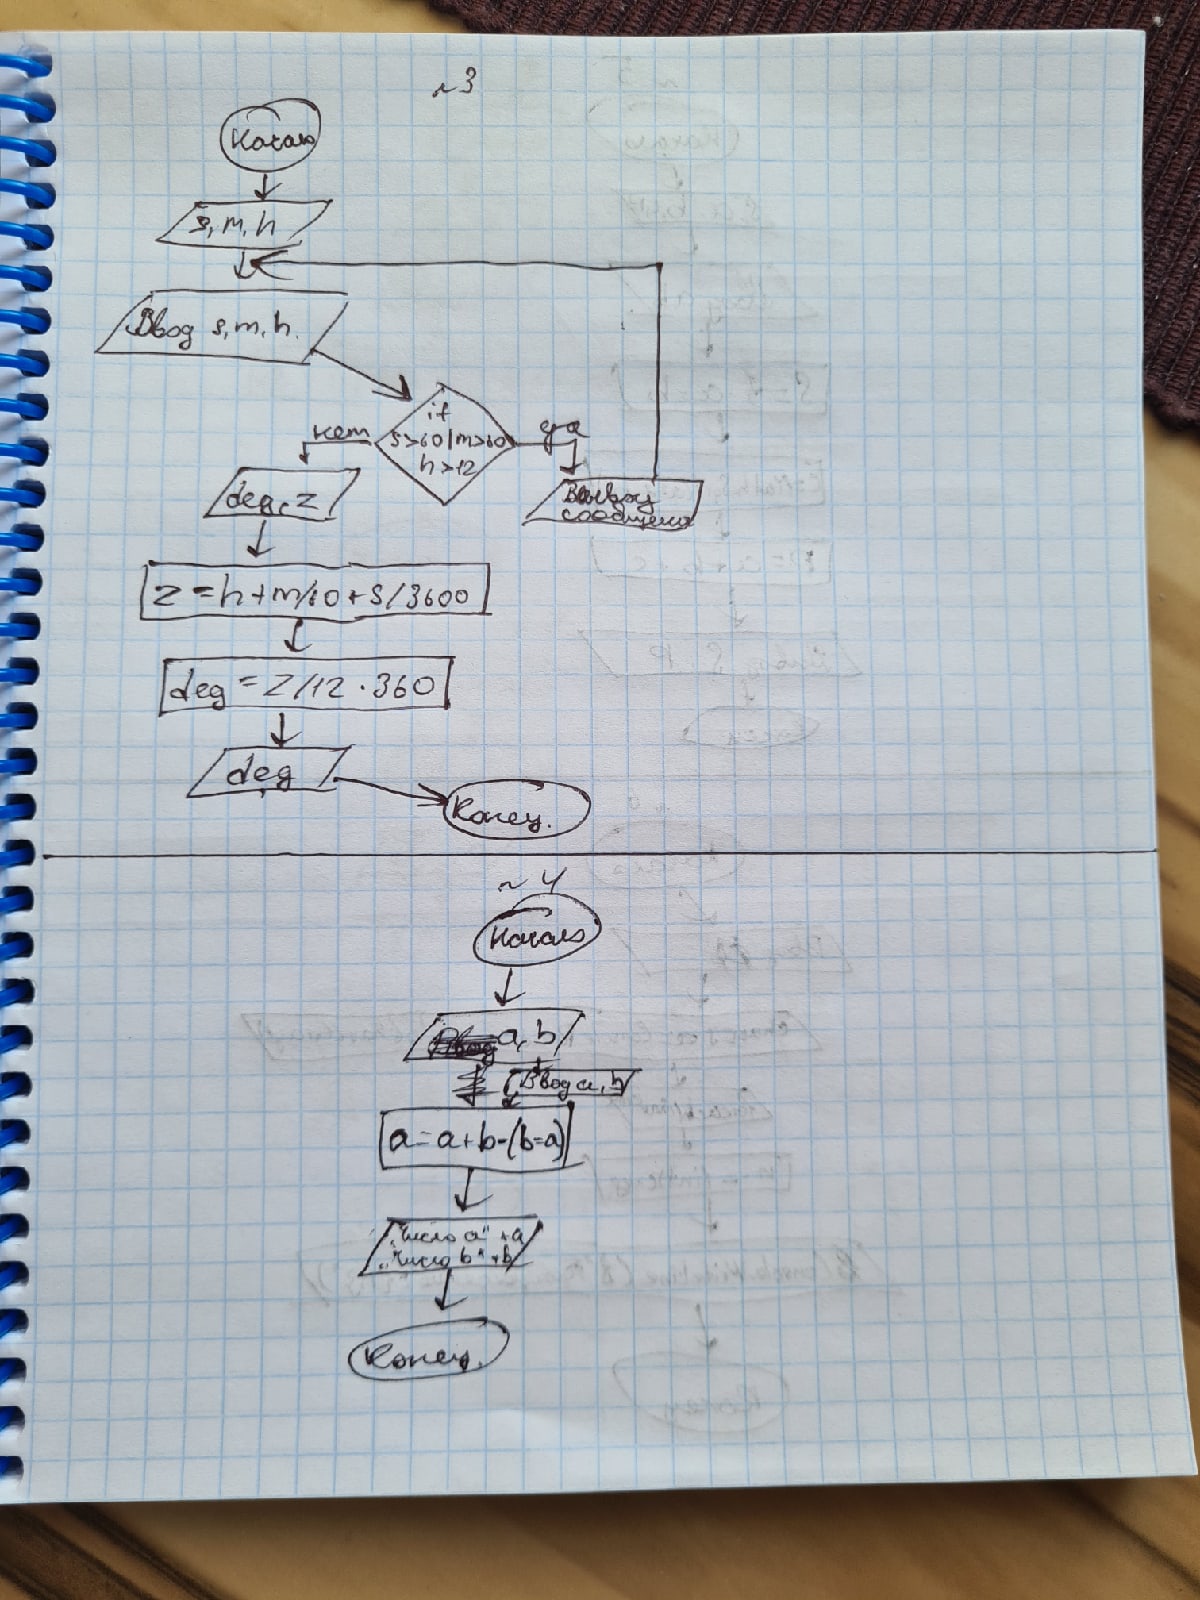 ~3
Начало
s, m, h
Ввод s, m, h.
if
s>60|m>60
h>12
нет
да
deg, z
Вывод
сообщения
z = h+m/60+s/3600
deg = z/12 · 360
deg
Конец.
~4
Начало
a, b
Ввод a, b
a = a+b-(b=a)
"Число a" +a
"Число b" +b
Конец.